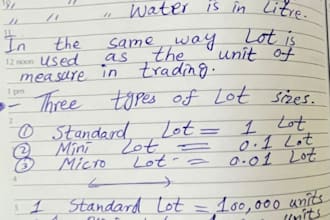 " " " Water is in Litre.
11
In the same way Lot is
12 noon used as the unit of
measure in trading.
1 pm
- Three types of Lot sizes.
2
① Standard Lot = 1 Lot
② Mini Lot = 0.1 Lot
③ Micro Lot = 0.01 Lot
4
5 1 Standard Lot = 100,000 units
units